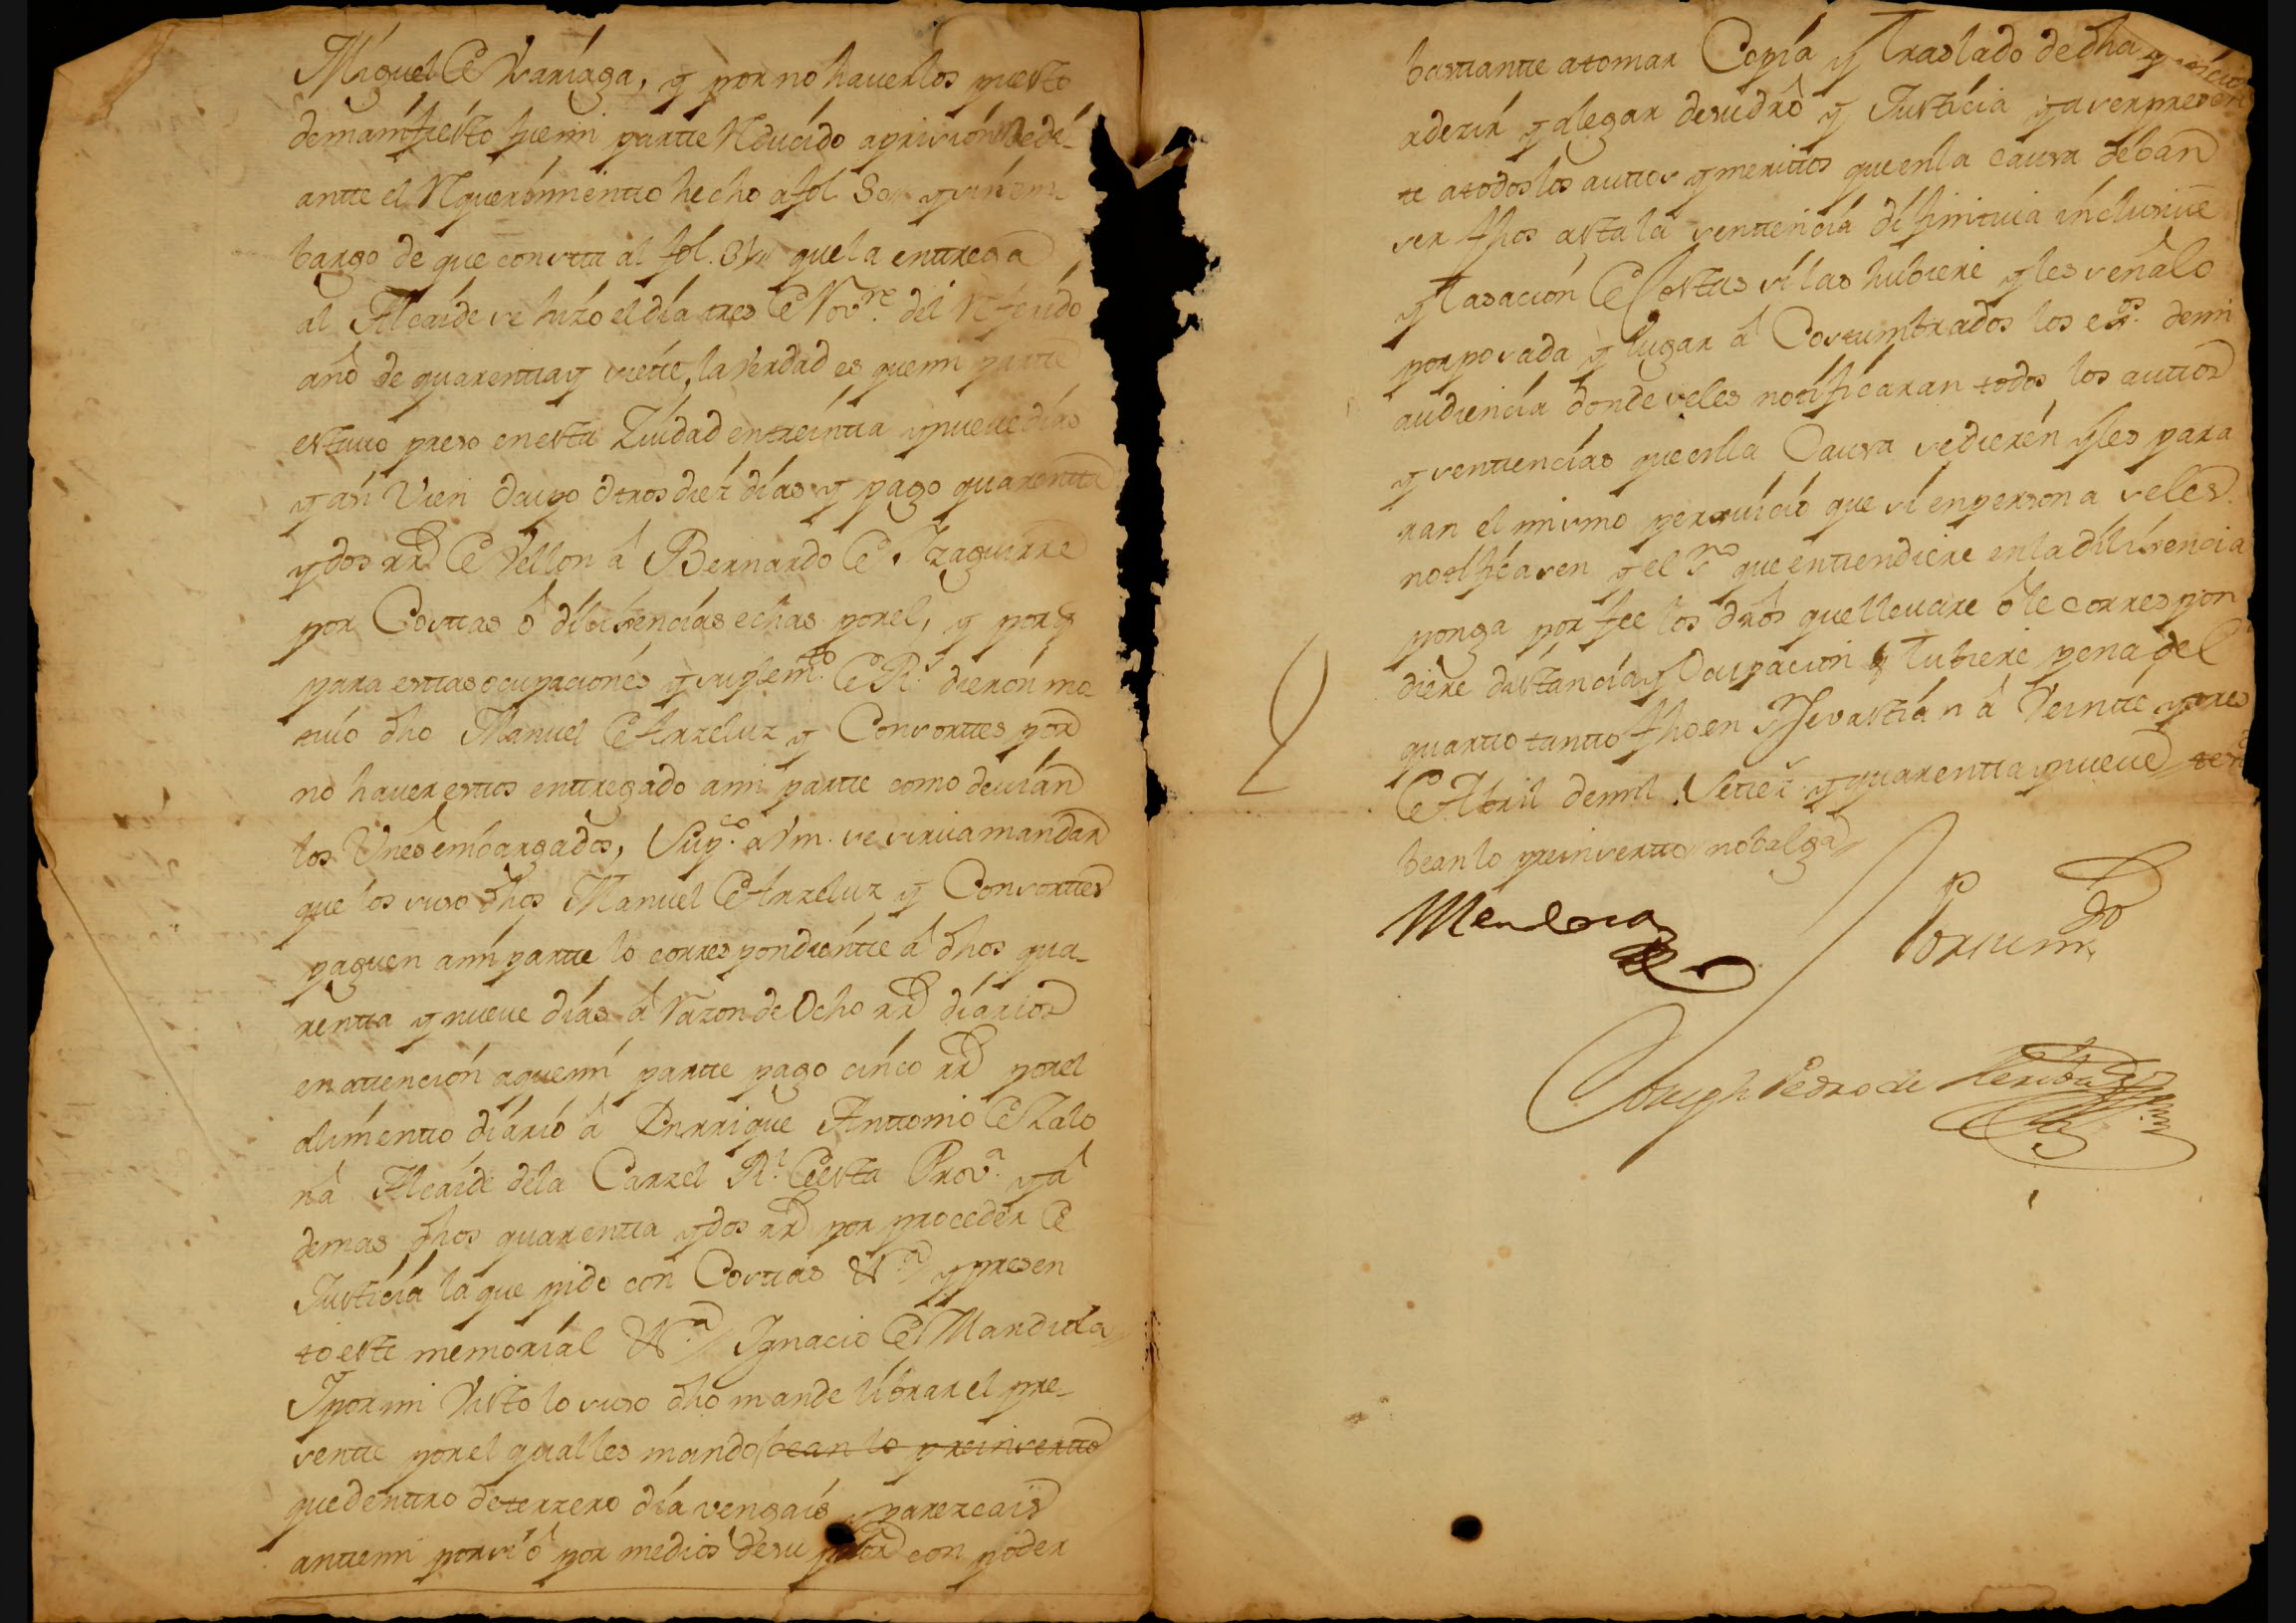 Miguel de Variaga, y por no hauerlos puesto
de manifiesto fue mi partte reducido a prision
antte el requerimientto hecho a fol. 80 y sin em-
bargo de que constta al fol. que la enttrega
al Alcaide se hizo el dia tres de Nov.re del referido
año de quarentta y siette, la verdad es que mi partte
esttuvo preso en estta Ziudad en treintta y nueve dias
y así vien ocupo otros diez dias y pago quarentta
y dos rrs de Vellon á Bernardo de Yzaguirre
por Costtas ó dilixencias echas por el, y porq
para esttas ocupaciones y suplem.to de Rs. dieron mo-
tivo dho Manuel de Arzeluz y Consorttes por
no haver esttos enttregado a mi partte como devian
los Vnes embargados, Sup.co a Vm. se sirva mandar
que los suso dhos Manuel de Arzeluz y Consorttes
paguen a mi partte lo correspondientte á dhos qua-
rentta y nueve dias á razon de Ocho rrs diarios
en attencion a que mi partte pago cinco rrs por el
alimentto diario á Enrrique Anttonio de Zalo
ná Alcaide de la Carzel Rl. de esta Prov.a y á
demas dhos quarentta y dos rrs por proceder de
Justicia la que pido con Costtas &.a y presen
to este memorial &.a Ygnacio de Mandiola
Y por mi visto lo suso dho mande librar el pre-
sentte por el qual les mando sean lo preinsertto
que denttro de terzero dia vengais y parezcais
antte mi por si ó por medio de su ptor con poder
basttantte a tomar Copia y Traslado de dha
a dezir y alegar de su dro y Justicia y a ver presen
te a todos los auttos y merittos que en la causa deban
ser fhos asta la senttencia difinitiva inclusive
y tasacion de Costtas si las hubiere y les señalo
por posada y lugar á Costumbrados los es.os de mi
audiencia donde se les notificaran todos los auttos
y senttencias que en la Causa se dieren y les para
ran el mismo perxuicio que si en persona se les
notificasen y el ss.no que enttendiere en la dilixencia
ponga por fee los dros que llevare ó le correspon
diere distancia y Ocupacion q Tubiere pena del
quartto tantto fho en Sn Sevastian á Veintte y tres
de Abril de mil Settez.s y quarentta y nueve
sean lo preinsertto no balga
Mendoza
Por su m.do
Joseph Pedro de